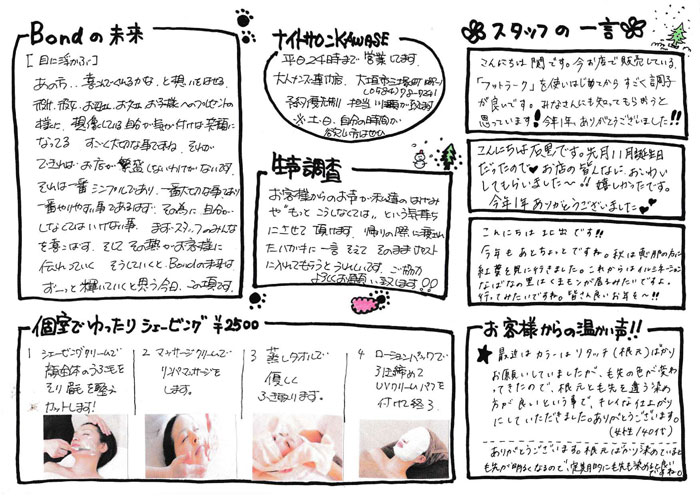 Bondの未来
[目に浮かぶ]
あのち.. 喜んでくれるかな、と想いをはせる、
様に、想像している自分が気が付けば笑顔に
なってる すっごく大切な事ですね。それが
できればお店が繁盛しないわけがないです。
それは一番シンプルであり、一番大切な事であり
一番やりやすい事であります。その為に自分が
しなくてはいけない事。まずスタッフのみんな
を喜こばす。そしてその輪がお客様に
伝わっていく そうしていくと、Bondの未来は
ずーっと輝いていくと思う今日この頃です。
ナイトサロンKAWASE
平日24時まで営業してます。
大人ナンス直行店、
予約優先制 担当
※土・日、自分の時間が
欲しい方はぜひ
生声調査
お客様からのお声が私達のはげみ
や"もっとこうしなくては"という気持ち
にさせて頂けます。帰りの際に
一言そえてそのままポスト
に入れてもらうとうれしいです。ご協力
よろしくお願い致します!!
スタッフの一言
こんにちは関です。今お店で販売している、
「フットラーク」を使いはじめてからすごく調子
が良いです。みなさんにも知ってもらおうと
思っています! 今年1年、ありがとうございました!!
こんにちは友黒です。先月11月誕生日
だったので♥お店の皆んなに、おいわい
してもらいました〜!! 嬉しかったです。
今年1年ありがとうございました♡
こんにちは 北出です!!
今年もあとちょっとですね。秋は恵那の方に
紅葉を見に行きました。これからはイルミネーション
なばなの里はくまモンが居るみたいですよ。
行ってみたいですね。皆さん良いお年を〜!!
個室でゆったりシェービング ¥2500
1 シェービングクリームで
顔全体のうぶ毛を
そり眉毛を整え
カットします!
2 マッサージクリームで
リンパマッサージを
します。
3 蒸しタオルで
優しく
ふき取ります。
4 ローションパックで
引き締めて
UVクリームパフを
付けて終る。
お客様からの温かい声!!
★最近はカラーはリタッチ(根元)ばかり
お願いしていましたが、毛先の色が変わ
ってきたので、根元と毛先を違う染め
方が良いという事で、キレイな仕上がり
にしていただきました。ありがとうございます。
(女性/40代)
ありがとうございます。根元ばかり染めていると
毛先が明るくなるので、定期的に毛先も染めると良い
ですね。